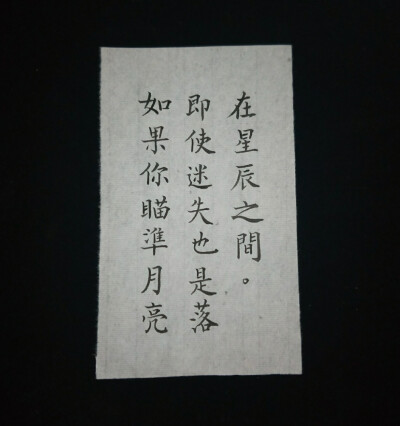 如果你瞄準月亮
即使迷失也是落
在星辰之間。